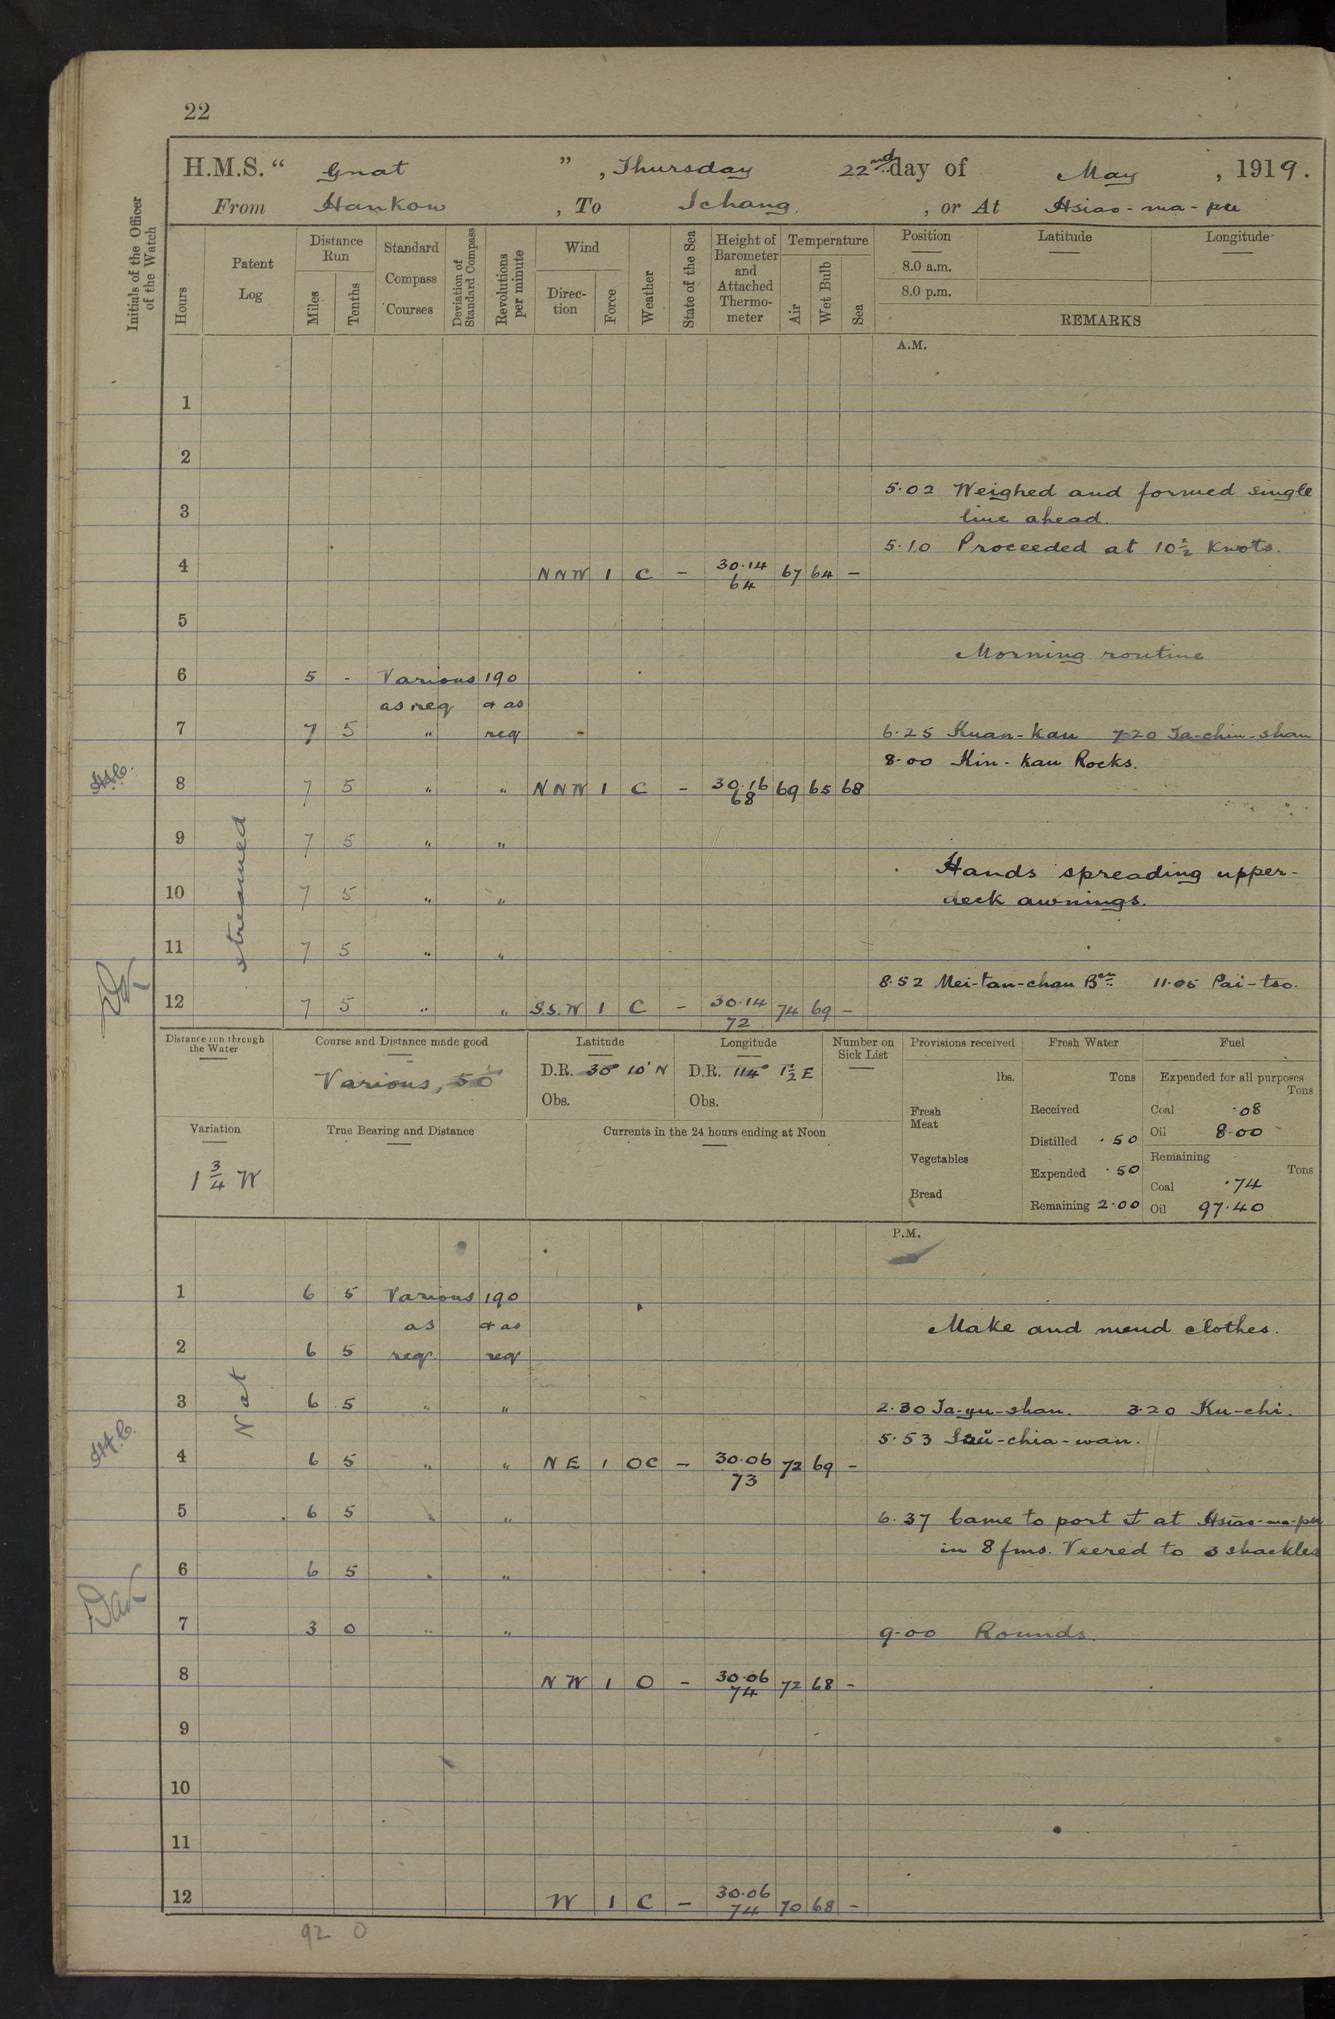 22
H.M.S. " Gnat ", Thursday 22nd day of May, 1919.
From Hankow, To Ichang, or At Hsiao-ma-pu
Initials of the Officer of the Watch
Hours
Patent Log
Distance Run
Miles Tenths
Standard Compass Courses
Deviation of Standard Compass
Revolutions per minute
Wind
Direction Force
Weather
State of the Sea
Height of Barometer and Attached Thermometer
Temperature
Air Wet Bulb Sea
Position Latitude Longitude
8.0 a.m.
8.0 p.m.
REMARKS
A.M.
1
2
5.02 Weighed and formed single
3 line ahead.
5.10 Proceeded at 10½ Knots.
4 NNW 1 C - 30.14 64 67 64 -
5
Morning routine
6 5 - Various 190
as req & as
7 7 5 " req 6.25 Kuan-kau 7.20 Ta-chin-shan
8.00 Kin-kau Rocks.
8 7 5 " " NNW 1 C - 30.16 68 69 65 68
9 7 5 " "
Hands spreading upper-
10 7 5 " " deck awnings.
streamed
11 7 5 " "
8.52 Mei-tan-chau Bcn 11.05 Pai-tso.
12 7 5 " " S.S.W 1 C - 30.14 72 74 69 -
Distance run through the Water
Course and Distance made good
Various, 50
Latitude
D.R. 30° 10' N
Obs.
Longitude
D.R. 114° 1½ E
Obs.
Number on Sick List
Provisions received
lbs.
Fresh Meat
Vegetables
Bread
Fresh Water
Tons
Received
Distilled .50
Expended .50
Remaining 2.00
Fuel
Expended for all purposes
Tons
Coal .08
Oil 8.00
Remaining
Tons
Coal .74
Oil 97.40
Variation
1¾ W
True Bearing and Distance
Currents in the 24 hours ending at Noon
P.M.
1 6 5 Various 190
as & as Make and mend clothes.
2 6 5 req. req
Not
3 6 5 " " 2.30 Ta-yu-shan. 3.20 Ku-chi.
5.53 -chia-wan.
4 6 5 " " NE 1 OC - 30.06 73 72 69 -
5 6 5 " " 6.37 Came to port ⚓ at Hsiao-ma-pu
in 8 fms. Veered to 3 shackles
6 6 5 " "
7 3 0 " " 9.00 Rounds.
8 NW 1 O - 30.06 74 72 68 -
9
10
11
12 W 1 C - 30.06 74 70 68 -
92 0